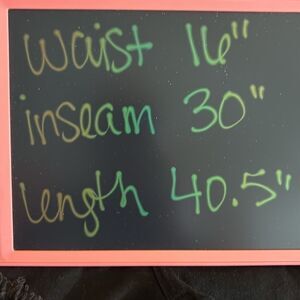 waist 16"
inseam 30"
length 40.5"